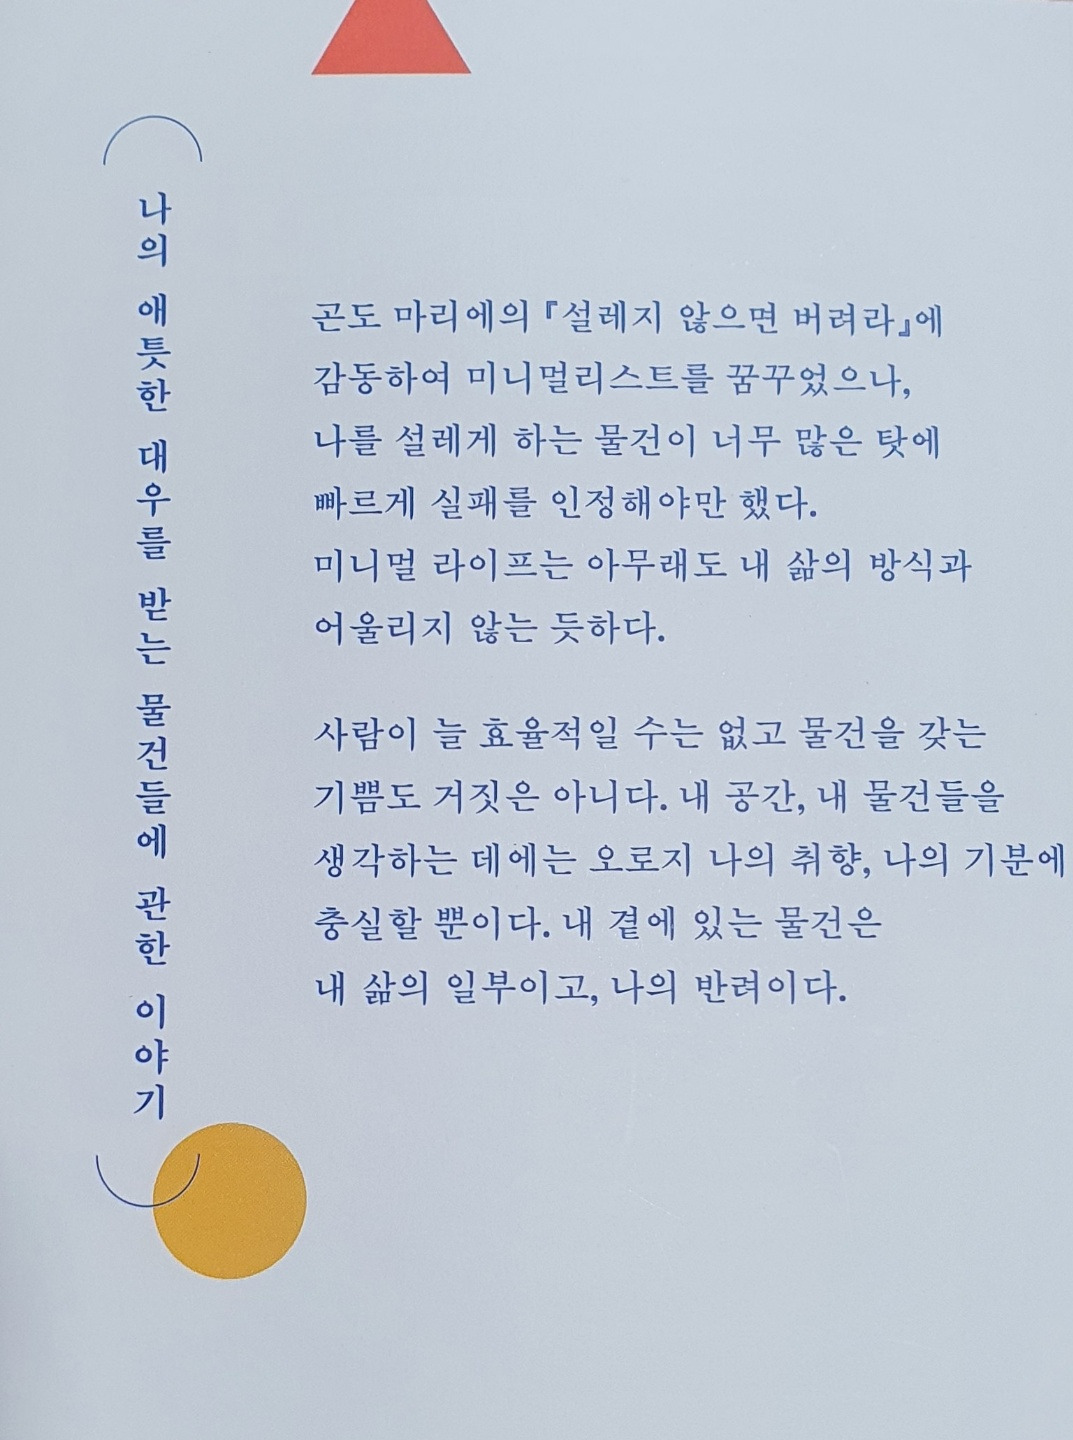 나의 애틋한 대우를 받는 물건들에 관한 이야기
곤도 마리에의 『설레지 않으면 버려라』에
감동하여 미니멀리스트를 꿈꾸었으나,
나를 설레게 하는 물건이 너무 많은 탓에
빠르게 실패를 인정해야만 했다.
미니멀 라이프는 아무래도 내 삶의 방식과
어울리지 않는 듯하다.
사람이 늘 효율적일 수는 없고 물건을 갖는
기쁨도 거짓은 아니다. 내 공간, 내 물건들을
생각하는 데에는 오로지 나의 취향, 나의 기분에
충실할 뿐이다. 내 곁에 있는 물건은
내 삶의 일부이고, 나의 반려이다.